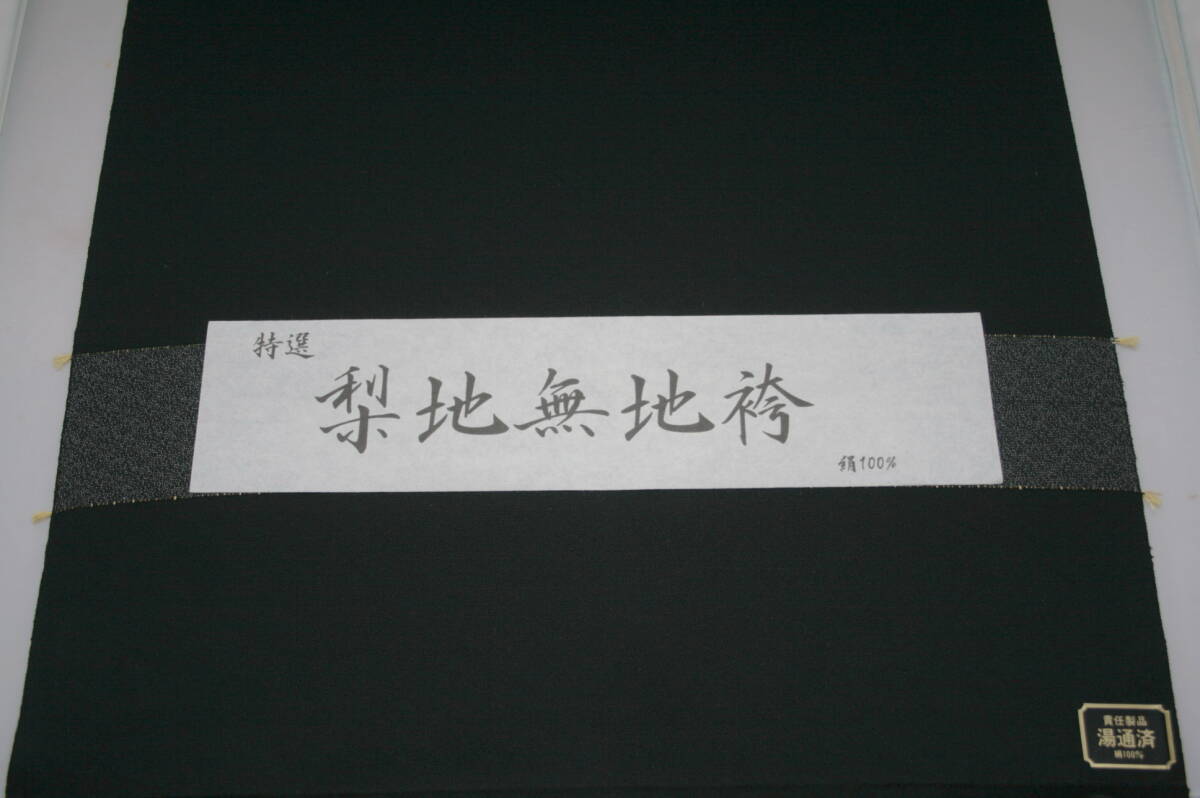 特選
梨地無地袴
絹100%
責任製品
湯通済
絹100%